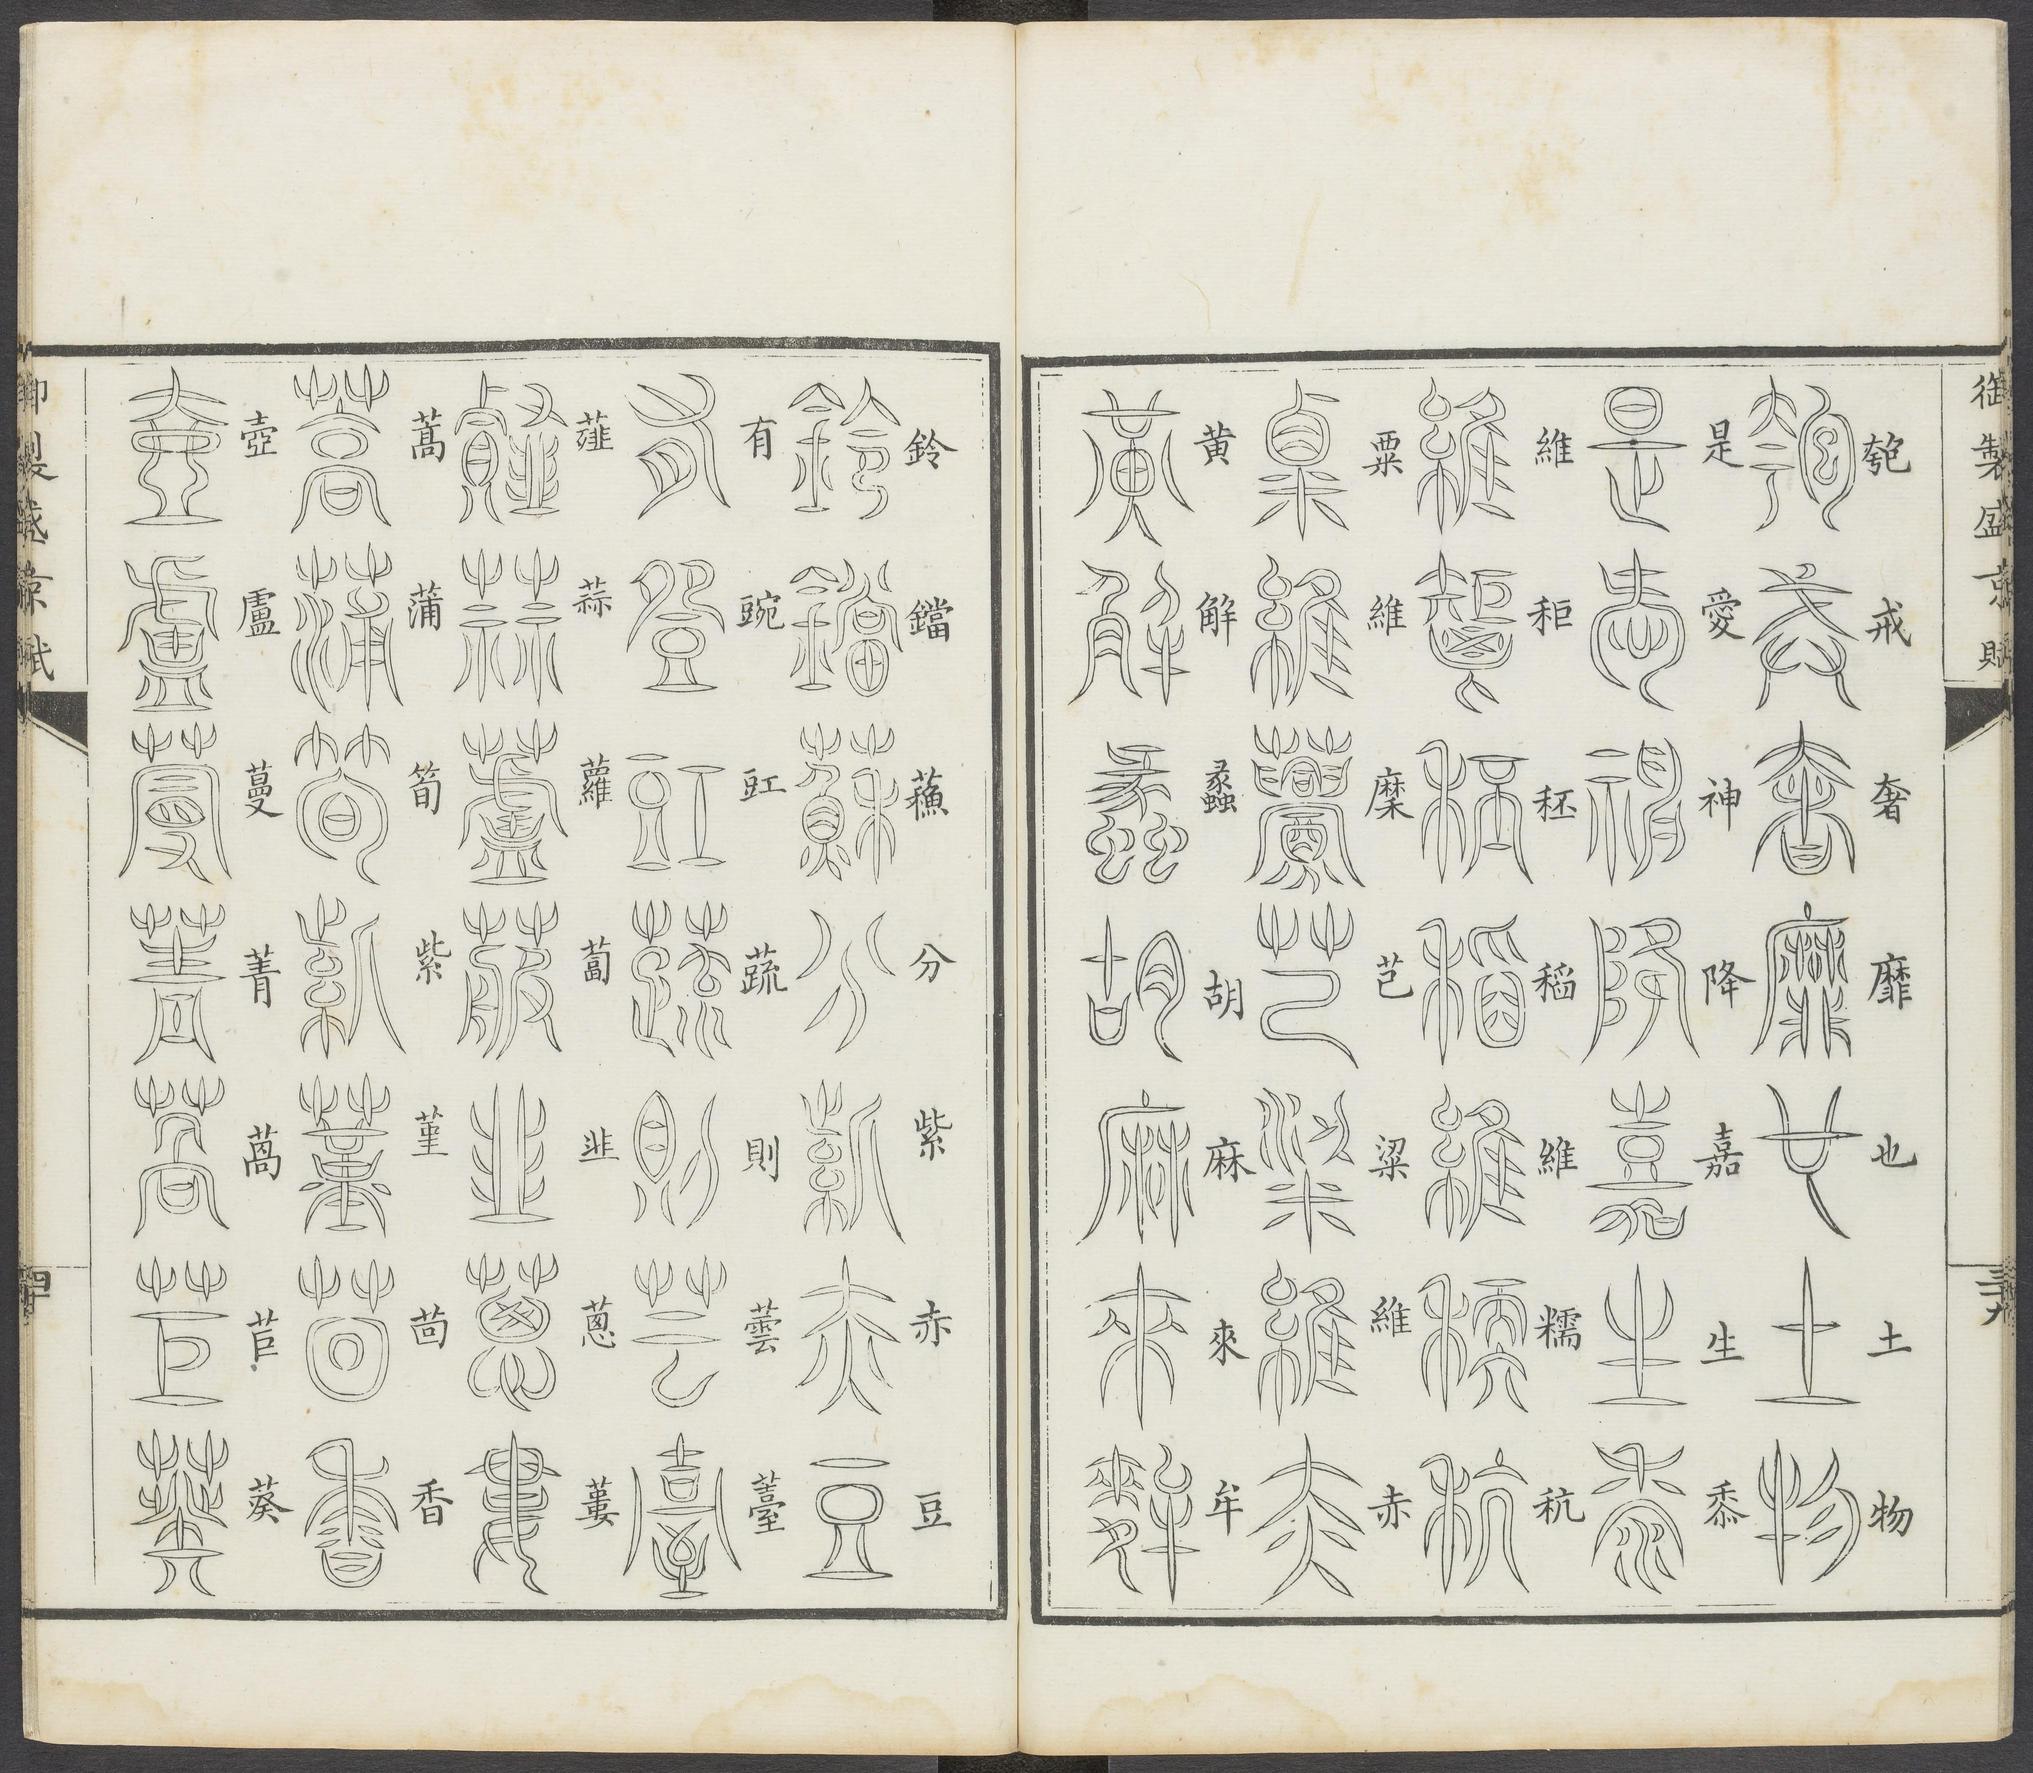 御製盛京賦
三十九
匏戒奢靡也土物
是愛神降嘉生黍
維秬秠稻維糯秔
粟維穈芑粱維赤
黃解蠡胡麻來牟
鈴鐺蘓分紫赤豆
有豌豇蔬則蕓薹
薤蒜蘿蔔韭蔥蔞
蒿蒲筍紫堇茴香
壺盧蔓菁萵苣葵
御製盛京賦
四十